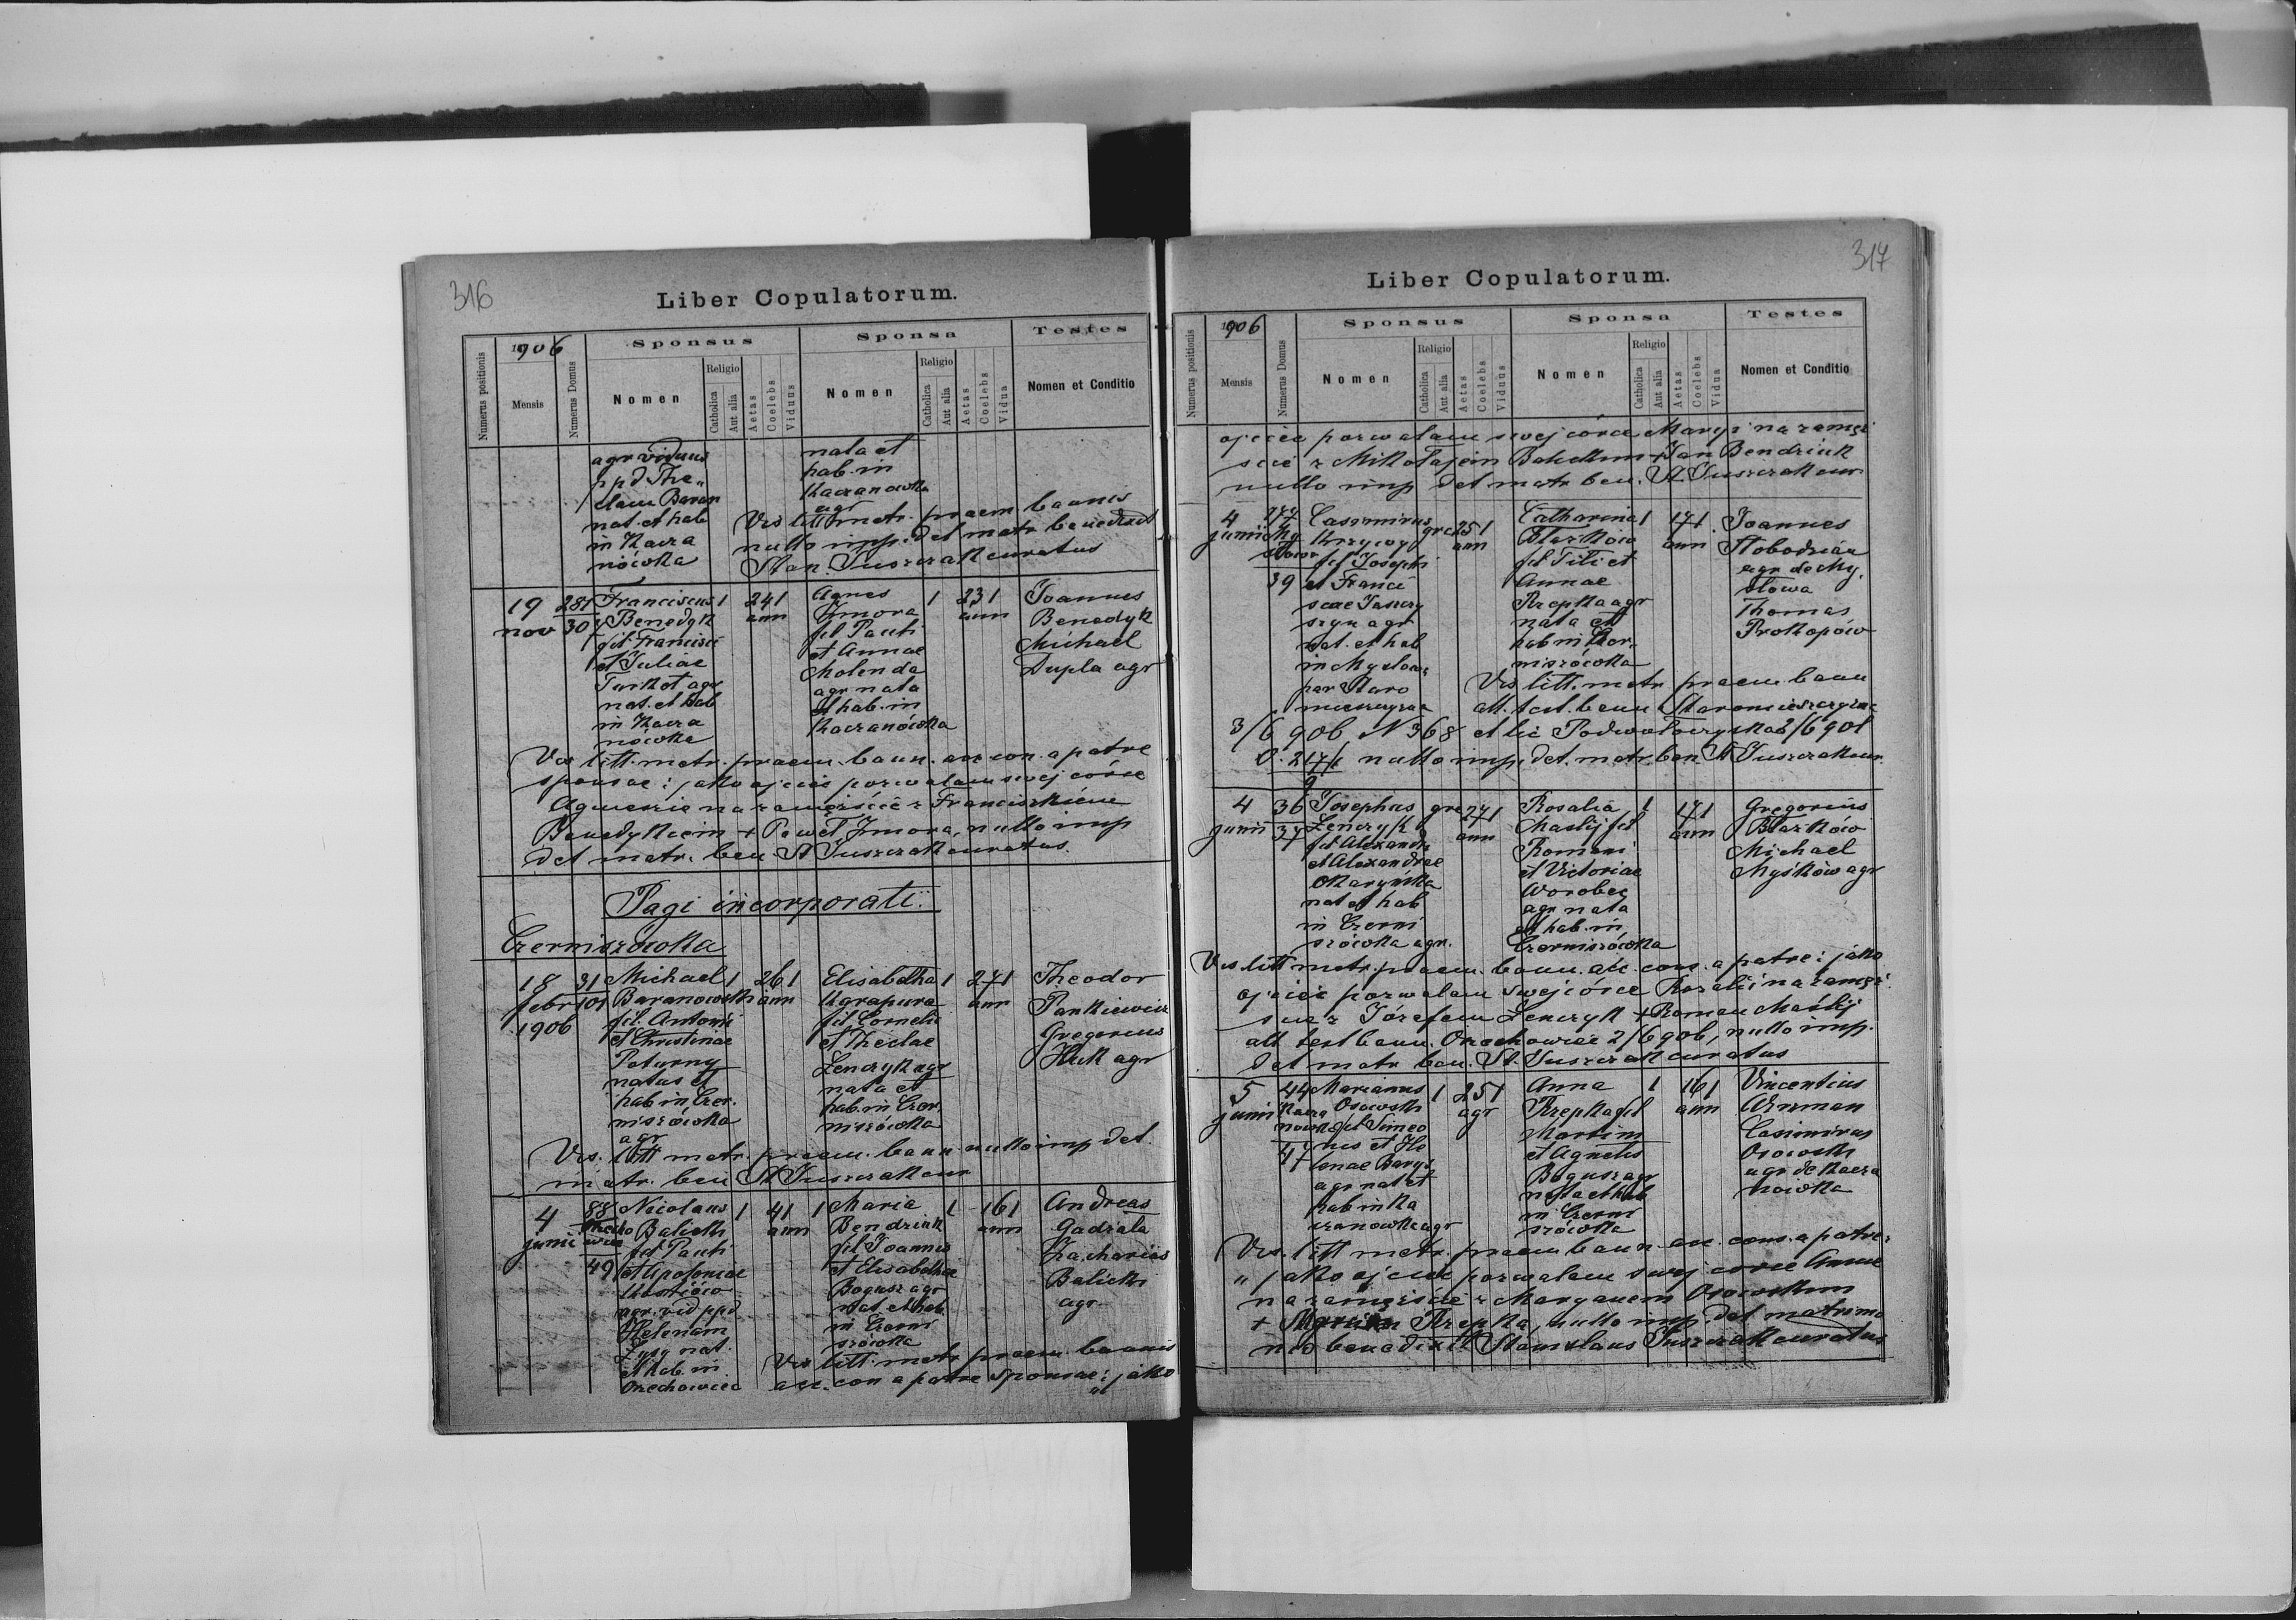 316
Liber Copulatorum.
Numerus positionis
1906
Mensis
Numerus Domus
Sponsus
Nomen
Religio
Catholica
Aut alia
Aetas
Coelebs
Viduus
Sponsa
Nomen
Religio
Catholica
Aut alia
Aetas
Coelebs
Vidua
Testes
Nomen et Conditio
agr viduus
ppd The„
clam Baran
nat. et hab
in Kacza
nówka
nata et
hab. in
Kaczanówka
agr
Vis litt metr. praem bannis
nullo imp. det matr benedixit
Stan. Juszczak curatus
19
nov
281
30
Franciscus 1 241
ann
Benedyk
fil Francisci
et Juliae
Turkot agr
nat. et hab
in Kacza
nówka
Agnes 1 231
ann
Zmora
fil Pauli
et Annae
Molenda
agr nata
et hab. in
Kaczanówka
Joannes
Benedyk
Michael
Dupla agr
Vis litt. metr. praem. bann. acc con. a patre
sponsae: jako ojciec pozwalam swej córce
Agnieszce na zamęźście z Franciszkiem
Benedykiem + Paweł Zmora, nullo imp
det matr. ben St Juszczak curatus.
Pagi incorporati.
Czerniszówka
18
febr
1906
31
101
Michael 1 261
Baranowski ann
fil. Antonii
et Christinae
Poturny
natus et
hab in Czer.
niszówka
agr
Elisabetha 1 271
ann
fil Cornelii
et Theclae
Lenczyk agr
nata et
hab. in Czer.
niszówka
Theodor
Pankiewicz
Gregorius
Huk agr
Vis. litt metr. praem. bann. nullo imp det.
matr. ben St Juszczak cur
4
junii
88
49
Nicolaus 1 41 1
ann
Balicki
fil Pauli
et Apoloniae
agr. vid ppd
Helenam
Łysy nat.
et hab in
Orzechowiec
Maria 1 161
ann
Bendziuk
fil Joannis
et Elisabethae
Bogusz agr
nat et hab
in Czerni
szówka
Andreas
Gadzała
Zacharias
Balicki
agr.
Vis litt. metr praem bannis
acc. con a patre sponsae: „jako
317
Liber Copulatorum.
Numerus positionis
1906
Mensis
Numerus Domus
Sponsus
Nomen
Religio
Catholica
Aut alia
Aetas
Coelebs
Viduus
Sponsa
Nomen
Religio
Catholica
Aut alia
Aetas
Coelebs
Vidua
Testes
Nomen et Conditio
ojciec pozwalam swej córce Maryi na zamęź
ście z Mikołajem Balickim + Jan Bendziuk
nullo imp det matr ben. St Juszczak cur
4
junii
277
My
słowa
39
Casimirus grc 251
ann
Krzywy
fil Josephi
et Franci
scae Taszczy
szyn agr
nat. et hab
in Mysłowa
par Staro
mieszczyzna
Catharina 1 171
ann
Błazków
fil Titi et
Annae
Rzepka agr
nata et
hab in Czer.
niszówka
Joannes
Słobodzian
agr de My.
słowa
Thomas
Prokopów
Vis litt. metr praem. bann
att. test. bann Staromieszczyzna
3/6 906 N 368 et lic Podwołoczyska 2/6 901
nullo imp. det. matr. ben St Juszczak cur.
4
junii
36
37
Josephus grc 271
ann
Lenczyk
fil Alexandri
et Alexandrae
nat et hab
in Czerni
szówka agr.
Rosalia 1 171
ann
Maślij fil
Romani
et Victoriae
Worobec
agr nata
et hab. in
Czerniszówka
Gregorius
Błazków
Michael
Myśków agr
Vis litt metr. praem. bann. acc. cons. a patre: jako
ojciec pozwalam swej córce Rozalii na zamęź.
ście z Józefem Lenczyk + Roman Maślij
att test bann. Orzechowiec 2/6 906, nullo imp.
det matr ben. St. Juszczak curatus
5
junii
44
Kacza
nówka
47
Marianus 1 251
agr
Osowski
fil Simeo
nis et He
lenae Barys
agr nat et
hab in Ka
czanówka agr
Anna 1 161
ann
Rzepka fil
Martini
et Agnetis
Bogusz agr
nata et hab
in Czerni
szówka
Vincentius
Casimirus
Osowski
agr de Kacza
nówka
Vis. litt metr. praem bann. acc. cons. a patre:
„jako ojciec pozwalam swej córce Annie
na zamęście z Maryanem Osowskim
+ Marcin Rzepka, nullo imp. det matrimo
nio benedixit Stanislaus Juszczak curatus